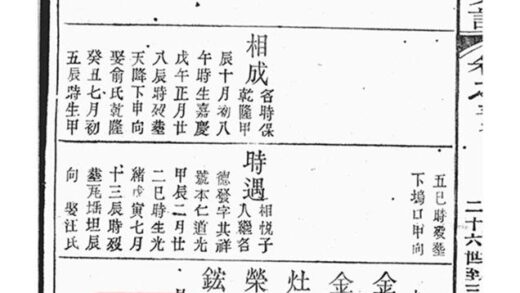 二十六世至三
相成
名時保
乾隆甲
辰十月初八
午時生嘉慶
戊午正月廿
八辰時歿葬
天降下申向
娶俞氏乾隆
癸丑七月初
五辰時生甲
五巳時歿葬
下塢口甲向
時遇
相悅子
人繼名
德發字其祥
號本仁道光
甲辰二月廿
二巳時生光
緒戊寅七月
十三辰時歿
葬瓦坦辰
向 娶汪氏
金
金
灶
榮
鋐